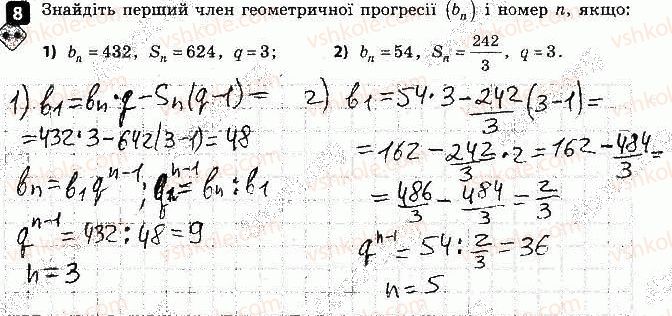 8 Знайдіть перший член геометричної прогресії (bₙ) і номер n, якщо:
1) bₙ = 432, Sₙ = 624, q = 3; 2) bₙ = 54, Sₙ = 242/3, q = 3.
1) b₁ = bₙ · q − Sₙ(q−1) =
= 432 · 3 − 642(3−1) = 48
bₙ = b₁qⁿ⁻¹; qⁿ⁻¹ = bₙ : b₁
qⁿ⁻¹ = 432 : 48 = 9
n = 3
2) b₁ = 54 · 3 − 242/3 (3−1) =
= 162 − 242/3 · 2 = 162 − 484/3 =
= 486/3 − 484/3 = 2/3
qⁿ⁻¹ = 54 : 2/3 = 36
n = 5